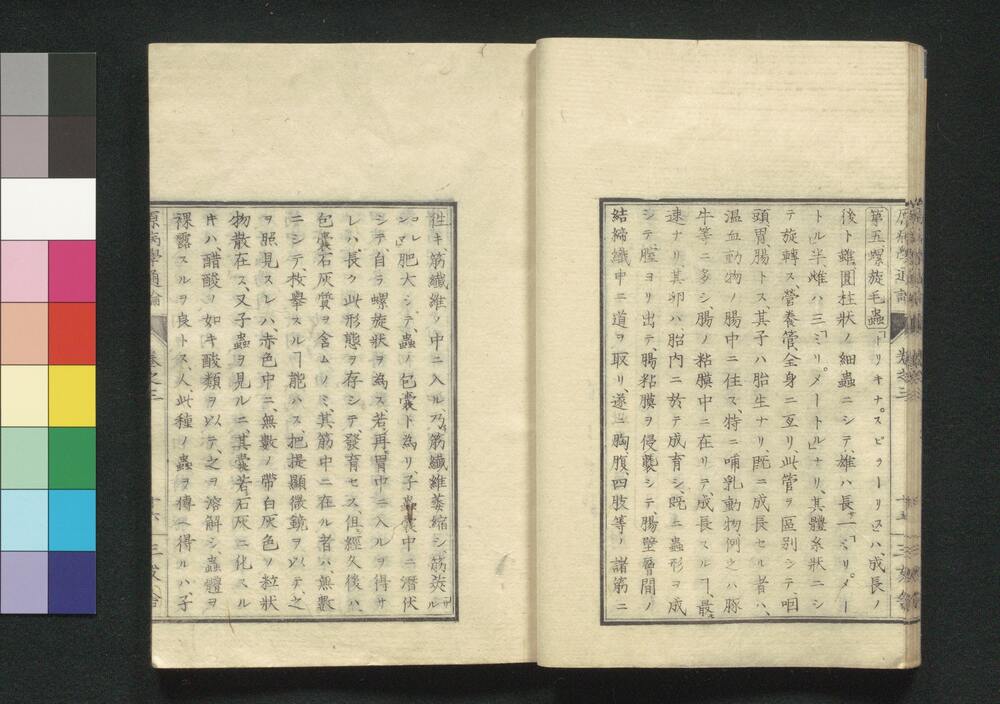 第五螺旋毛蟲「トリキナ。スピラーリス」ハ、成長ノ
後ト雖圓柱狀ノ細蟲ニシテ、雄ハ長サ一「ミリ。メー
トル」半雌ハ三「ミリ。メートル」ナリ、其體糸狀ニシ
テ旋轉ス營養管全身ニ亙リ、此管ヲ區別シテ、咽
頭胃腸トス其子ハ胎生ナリ、既ニ成長セル者ハ、
溫血動物ノ腸中ニ住ス、特ニ哺乳動物例之ハ豚
牛等ニ多シ腸ノ粘膜中ニ在リテ、成長スルヿ、最
速ナリ其卵ハ、胎內ニ於テ成育シ、既ニ蟲形ヲ成
シテ膣ヨリ出テ、腸粘膜ヲ侵襲シテ腸壁層間ノ
結締織中ニ道ヲ取リ、遂ニ胸、腹、四肢等ノ諸筋ニ
徃キ、筋纖維ノ中ニ入ル、乃筋纖維萎縮シ、筋莢ハ
肥大シテ、蟲ノ包囊ト為リ、子蟲囊中ニ潛伏
シテ、自ラ螺旋狀ヲ為ス、若再胃中ニ入ルヲ得サ
レハ、長ク此形態ヲ存シテ、發育セス、但經久後ハ、
包囊石灰質ヲ含ムノミ、其筋中ニ在ル者ハ、無數
ニシテ、枚擧スルヿ能ハス、把提顯微鏡ヲ以テ、之
ヲ照見スレハ、赤色中ニ、無數ノ帶白灰色ノ粒狀
物散在ス、又子蟲ヲ見ルニ、其囊若石灰ニ化スル
キハ、醋酸ノ如キ酸類ヲ以テ、之ヲ溶解シ、蟲體ヲ
裸露スルヲ良トス、人、此種ノ蟲ヲ傳ヘ得ルハ、子
原病學通論
卷之三
十六